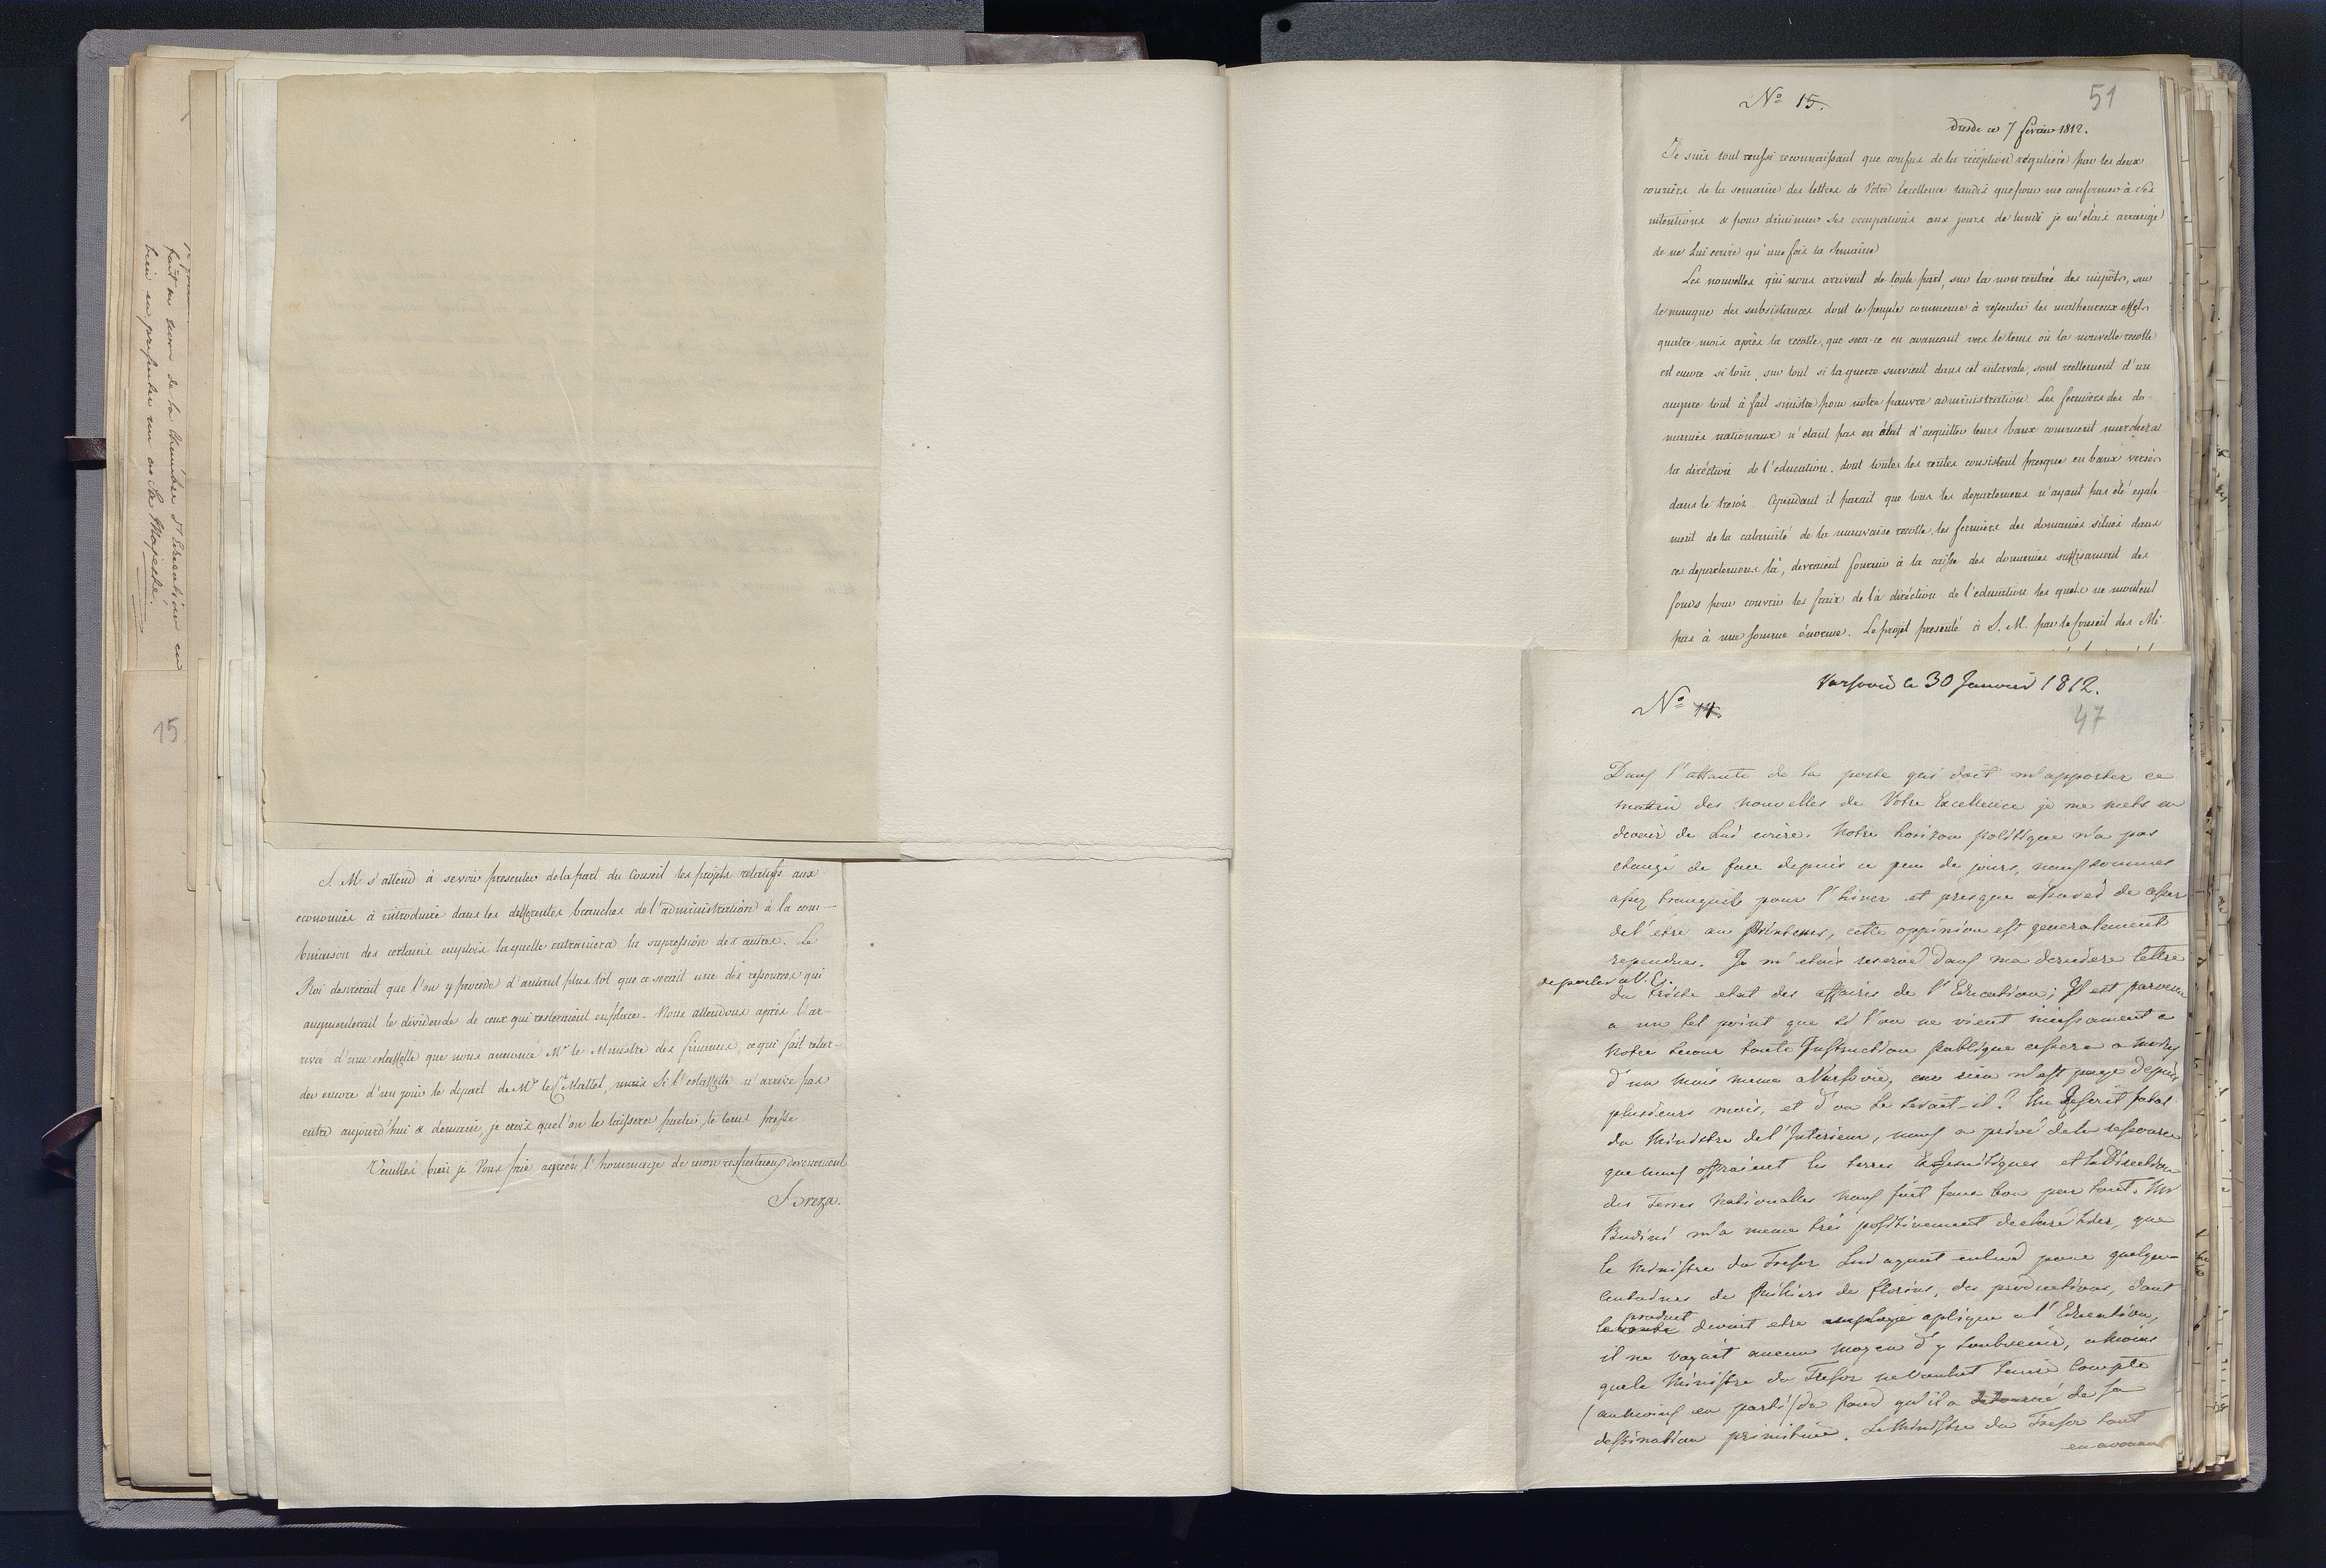 bien en presenter un au Sa Majesté.
15
S. M. s'attend à se voir presenter de la part du Conseil les projets relatifs aux
economies à introduire dans les differentes branches de l'administration à la com-
binaison des certains emplois laquelle entrainera la supression des autres. Le
Roi desirerait que l'on y procede d'autant plus tôt que ce serait une des ressources qui
augmenterait le dividende de ceux qui resteraient en place. Nous attendons après l'ar-
rivée d'une estaffette que nous annonce Mr le Ministre des finances, ce qui fait retar-
der encore d'un jour le départ de Mr le Ct Mallet, mais si l'estaffette n'arrive pas
entre aujourd'hui & demain, je crois que l'on le laissera partir, le tems presse
Veuillés bien je Vous prie agréer l'hommage de mon respectueux devouement
Breza.
No 15.
51
Dresde ce 7 février 1812.
Je suis tout aussi reconnaissant que confus de la réception réguliere par les deux
couriers de la semaine des lettres de Votre Excellence tandis que pour me conformer à Ses
intentions & pour diminuer Ses occupations aux jours de lundi je m'étais arrangé
de ne Lui ecrire qu'une fois la semaine
Les nouvelles qui nous arrivent de toute part, sur la non rentrée des impôts, sur
le manque des subsistances dont le peuple commence à ressentir les malheureux effets
quatre mois après la recolte, que sera-ce en avançant vers le tems où la nouvelle recolte
est encore si loin, sur tout si la guerre survient dans cet intervale, sont reellement d'un
augure tout à fait sinistre pour nôtre pauvre administration. Les fermiers des do-
maines nationaux n'etant pas en état d'acquitter leurs baux comment marchera
la diréction de l'education, dont toutes les rentes consistent presque en baux versés
dans le tresor. Cependant il parait que tous les departemens n'ayant pas été egale
ment de la calamité de la mauvaise recolte, les fermiers des domaines situés dans
ces departemens là, devraient fournir à la caisse des domaines suffisament des
fonds pour couvrir les fraix de là diréction de l'education les quels ne montent
pas à une somme énorme. Le projet presenté à S. M. par le Conseil des Mi-
Varsovie ce 30 Janvier 1812.
No 14.
47
Dans l'attente de la poste qui doit m'apporter ce
matin des nouvelles de Votre Excellence je me mets en
devoir de Lui ecrire. Notre horizon politique n'a pas
changé de face depuis ce peu de jours, nous sommes
assez tranquils pour l'hiver et presque assurés de cesser
de l'être au Printems, cette oppinion est generalement
rependue. Je m'etais reservé dans ma derniere lettre
de parler a V. E.
du triste etat des affaires de l'Education; Il est parvenu
a un tel point que si l'on ne vient incessament a
notre secour toute Instruction publique cessera a moins
d'un mois meme a Varsovie, car rien n'est payé depuis
plusieurs mois, et d'ou le serait-il? Un Rescrit fatal
du Ministre de l'Interieur, nous a privé de la ressource
que nous offraient les terres ExJesuitiques et la Direction
des Terres Nationales nous fait faux bon par tout. Mr
m'a meme très positivement declaré hier, que
le Ministre du Tresor Lui ayant enlevé pour quelque
centaines de Milliers de florins, des productions, dont
produit
le devait etre employé apliqué a l'Education,
il ne voyait aucun moyen d'y subvenir, a moins
que le Ministre du Tresor ne voulut tenir compte
(au moins en parti) du fond qu'il a detourné de sa
destination primitive. Le Ministre du Tresor tout
en avouant